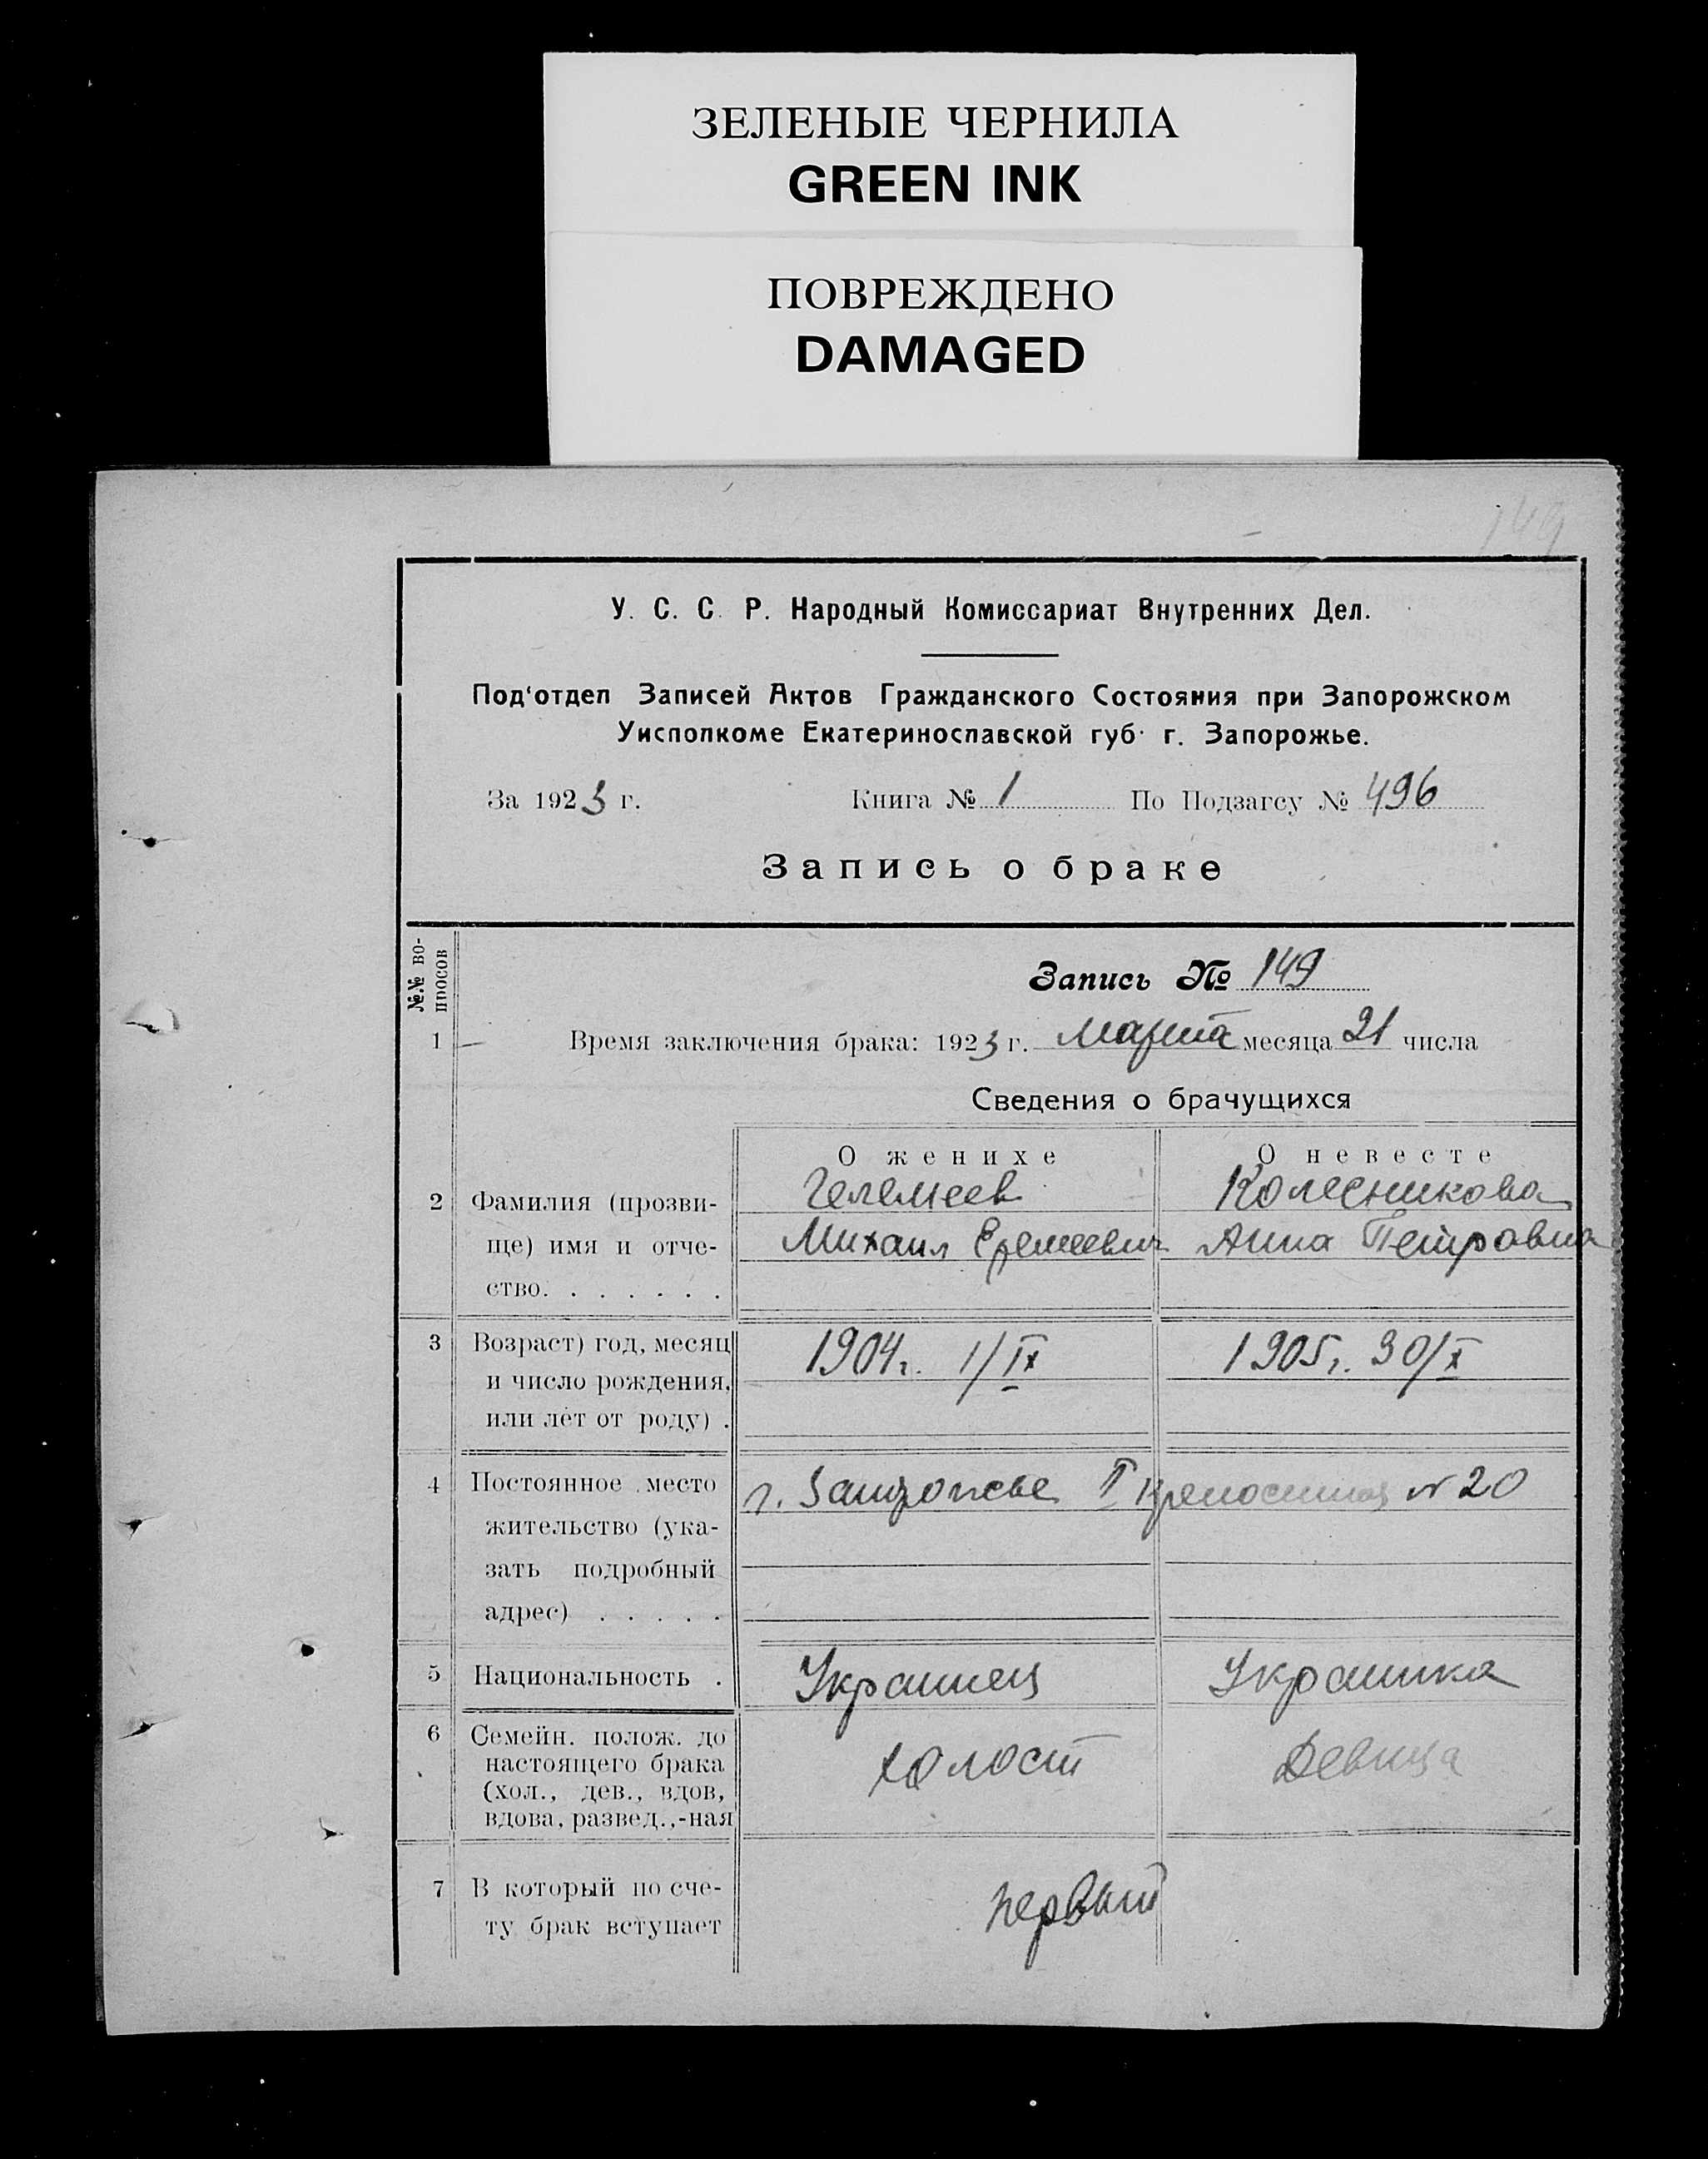 ЗЕЛЕНЫЕ ЧЕРНИЛА
GREEN INK
ПОВРЕЖДЕНО
DAMAGED
149
У. С. С. Р. Народный Комиссариат Внутренних Дел.
Под‘отдел Записей Актов Гражданского Состояния при Запорожском
Уисполкоме Екатеринославской губ. г. Запорожье.
За 1923 г. Книга № 1 По Подзагсу № 496
Запись о браке
№№ во-
просов
Запись № 149
1 Время заключения брака: 1923 г. Марта месяца 21 числа
Сведения о брачущихся
О женихе О невесте
2 Фамилия (прозви- Колесникова
ще) имя и отче- Михаил Еремеевич Анна Петровна
ство. . . . . . .
3 Возраст) год, месяц 1904г. 1/IX 1905г. 30/X
и число рождения,
или лет от роду) .
4 Постоянное место г. Запорожье II № 20
жительство (ука-
зать подробный
адрес) . . . . .
5 Национальность . Украинец Украинка
6 Семейн. полож. до
настоящего брака холост Девица
(хол., дев., вдов,
вдова, развед.,-ная
7 В который по сче- первый
ту брак вступает